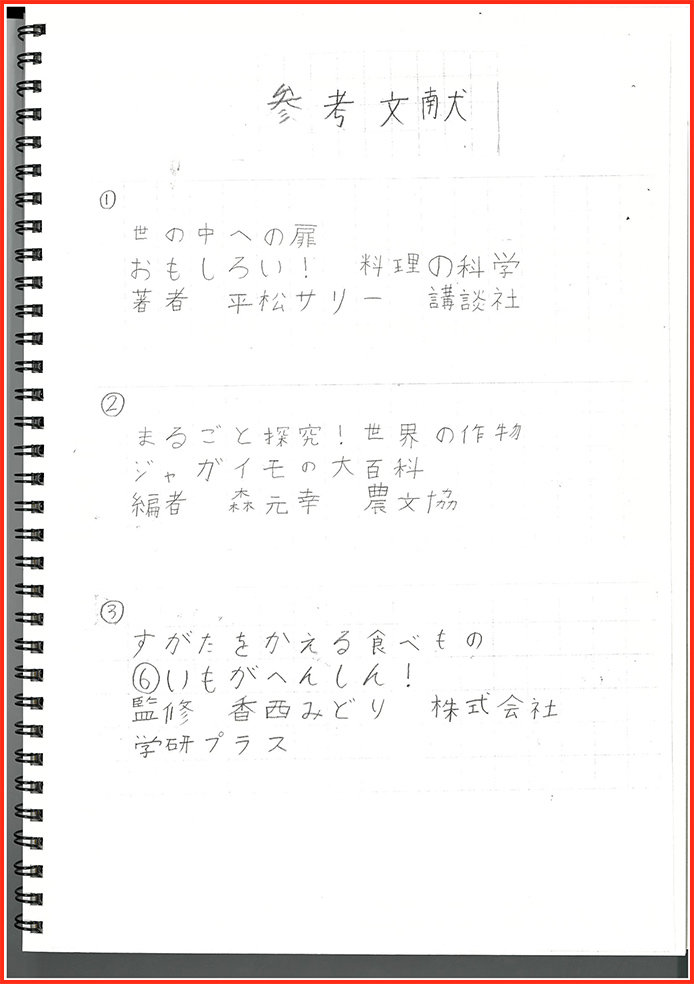 参考文献
①
世の中への扉
おもしろい! 料理の科学
著者 平松サリー 講談社
②
まるごと探究!世界の作物
ジャガイモの大百科
編者 森元幸 農文協
③
すがたをかえる食べもの
⑥いもがへんしん!
監修 香西みどり 株式会社
学研プラス